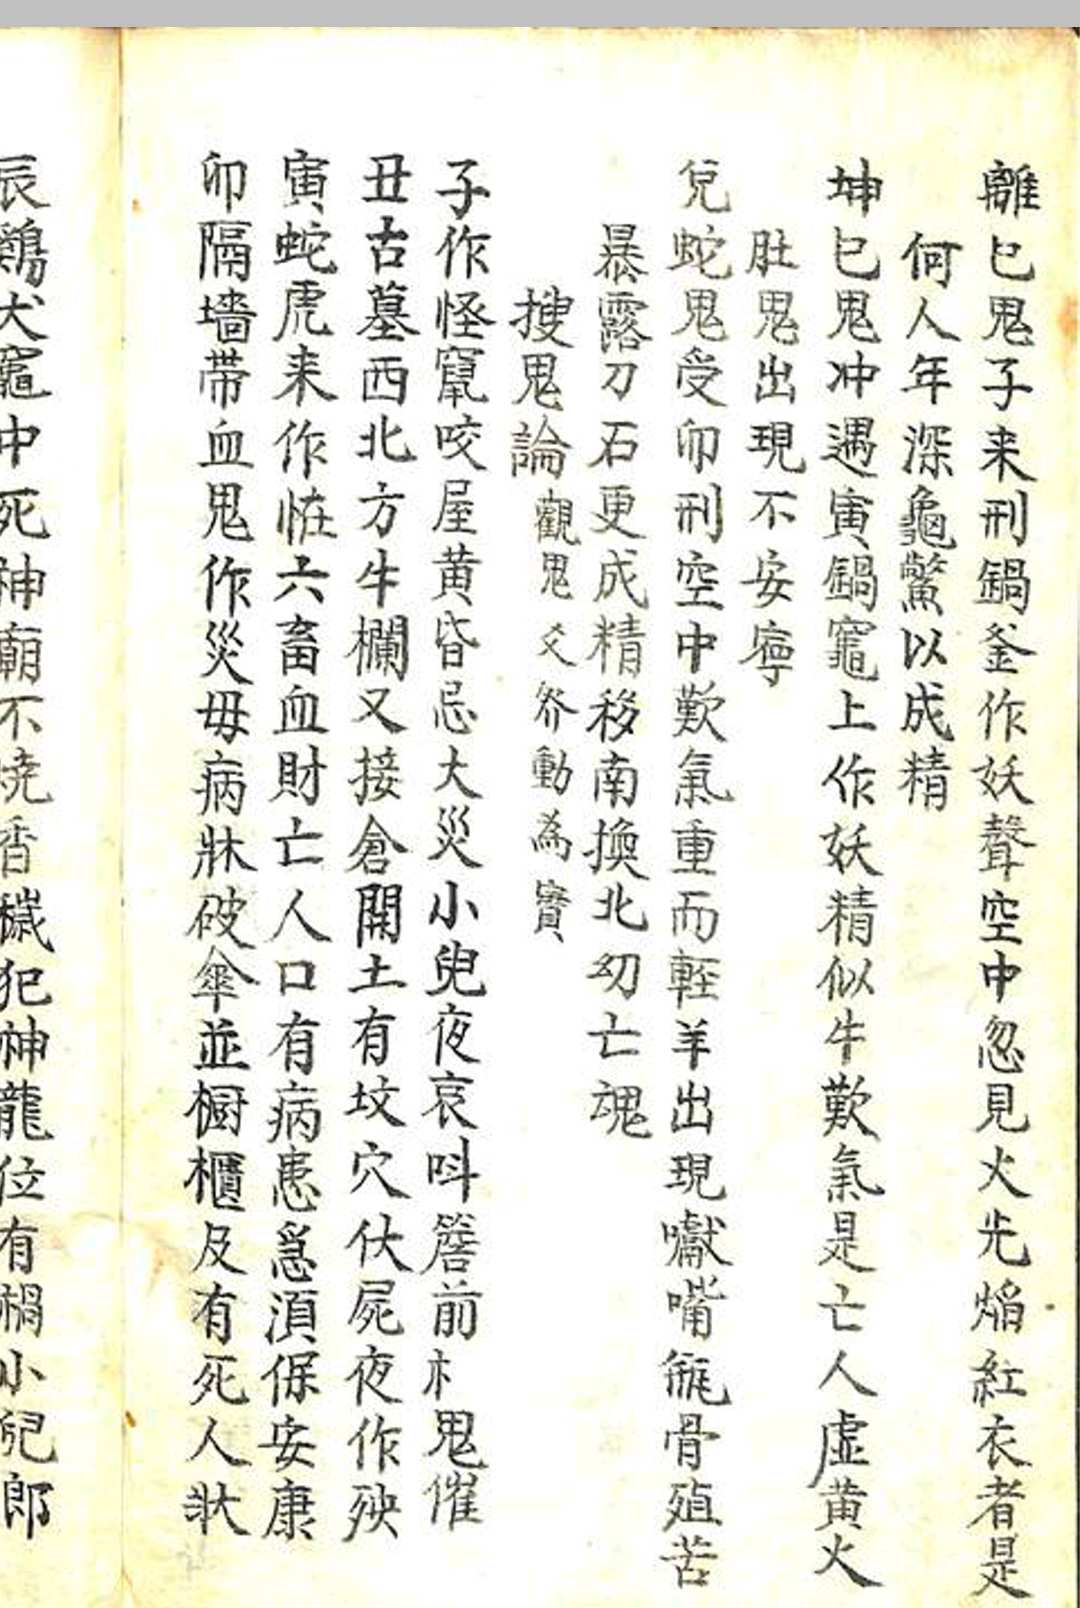 離巳鬼子来刑鍋釜作妖聲空中忽見火光焰紅衣者是
何人年深龜鱉以成精
坤巳鬼冲遇寅鍋竈上作妖精似牛歎氣是亡人虚黄火
肚鬼出現不安寧
兌蛇鬼受卯刑空中歎氣重而輕羊出現嘴骨殖苦
暴露刀石更成精移南換北幼亡魂
搜鬼論 觀鬼爻動為實
子作怪鼠咬屋黄昏忌大災小兒夜哀呌簷前鬼催
丑古墓西北方牛欄又接倉開土有坟穴伏屍夜作殃
寅蛇虎来作怪六畜血財亡人口有病患急須保安康
卯隔墙带血鬼作災母病牀破傘並橱櫃及有死人狀
辰鷄犬竈中死神廟不燒香穢犯神龍位有禍小兒郎